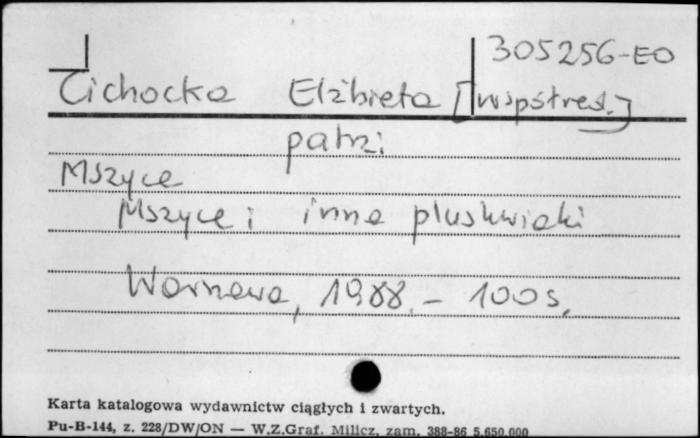 305256-EO
Cichocka Elżbieta [współred.]
patrz:
Mszyce
Mszyce i inne pluskwiaki
Warszawa, 1988. - 100 s.
Karta katalogowa wydawnictw ciągłych i zwartych.
Pu-B-144, z. 228/DW/ON — W.Z.Graf. Milicz, zam. 388-86 5.650.000